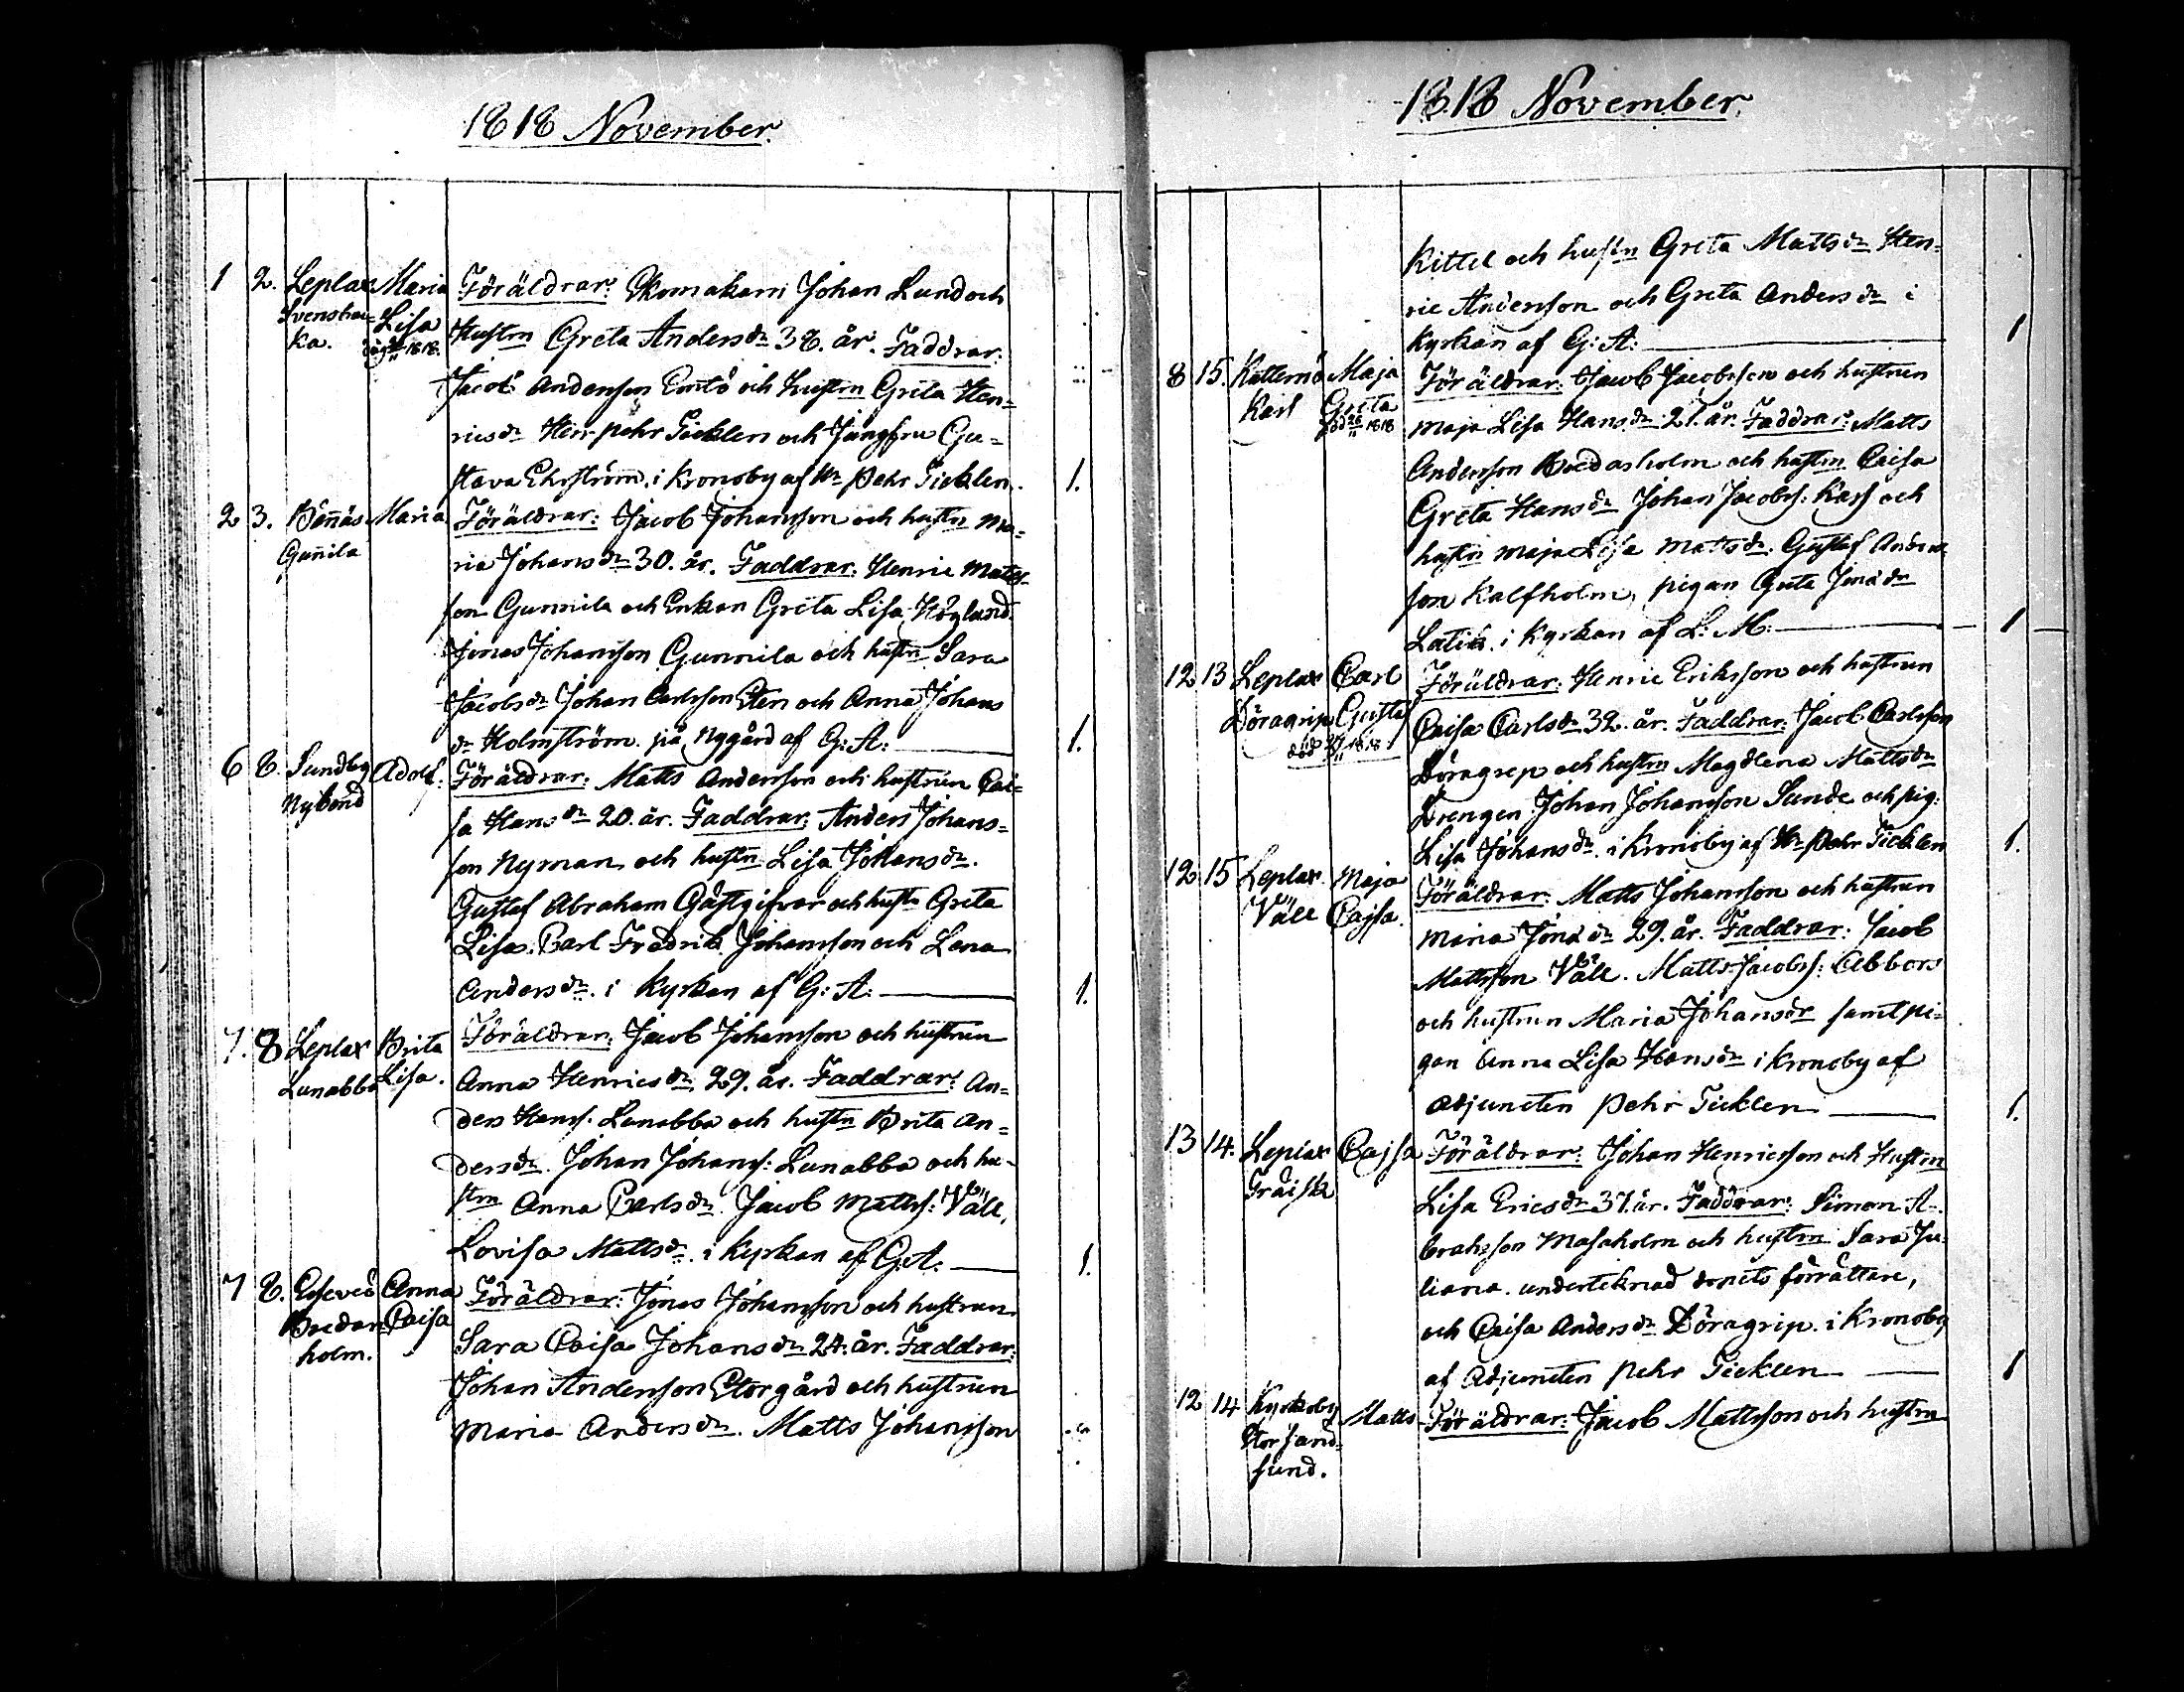 1818 November.
1 2. Leplax Maria Föräldrar: Skomakarn Johan Lund och
Svenshau= Lisa Hustrn Greta Andersdr 38. år. Faddrar:
ka. 1818. Jacob Andersson Emtö och Hustrn Greta Hen=
ricsdr Herr pehr Ticklen och Jungfru Gu=
stava Ehrström. i Kronoby af Hr Pehr Ticklen. 1.
2 3. Bennäs Maria Föräldrar: Jacob Johansson och hustrn Ma=
Gunnila ria Johansdr 30. år. Faddrar: Henric Mats=
son Gunnila och Enkan Greta Lisa Höglund.
Jonas Johansson Gunnila och hustrn Sara
Jacobsdr Johan Carlsson Sten och Anna Johans
dr Holmström. på Nygård af G: A: 1.
6 8. Sundby Adolf: Föräldrar: Matts Andersson och hustrun Cai=
Nybond sa Hansdr 20. år. Faddrar: Anders Johans=
son Nyman och hustrn Lisa Johansdr.
Gustaf Abraham Gästgifvar och hustr Greta
Lisa. Carl Fredrik Johansson och Lena
Andersdr. i Kyrkan af G: A: 1.
7. 8 Leplax Brita Föräldrar: Jacob Johansson och hustrun
Lunabba Lisa. Anna Henricsdr 29. år. Faddrar: An=
ders Hanss. Lunabba och hustrn Brita An=
dersdr. Johan Johanss: Lunabba och hu=
strn Anna Carlsdr. Jacob Mattss: Wäll,
Lovisa Mattsdr. i Kyrkan af G: A: 1.
7 8. Esseveö Anna Föräldrar: Jonas Johansson och hustrun
Bredar Caisa Sara Caisa Johansdr 24. år. Faddrar:
holm. Johan Andersson Storgård och hustrun
Maria Andersdr. Matts Johansson
1818 November.
Kittel och hustrn Greta Mattsdr Hen=
ric Andersson och Greta Andersdr i
Kyrkan af G: A: 1
8 15. Katternö Maja Föräldrar: Jacob Jacobsson och hustrun
Karf Greta Maja Lisa Hansdr 21. år. Faddrar: Matts
död 26/11 1818 Andersson Bredarholm och hustrn Caisa
Greta Hansdr Johan Jacobss: Karf och
hustrn Maja Lisa Mattsdr. Gustaf Anders
son Kalfholm, pigan Greta Jonsdr
i Kyrkan af L: M: 1
12 13 Leplax Carl Föräldrar: Henric Eriksson och hustrun
Döragrip Gustaf Caisa Carlsdr 32. år. Faddrar: Jacob Carlsson
död 1818 Döragrip och hustrn Magdlena Mattsdr
Drengen Johan Johansson Sunde och pig:
Lisa Johansdr. i Kronoby af Hr Pehr Ticklen 1.
12 15 Leplax Maja Föräldrar: Matts Johansson och hustrun
Wäll Cajsa. Maria Jonsdr 29. år. Faddrar: Jacob
Mattsson Wäll. Matts Jacobss: Abbors
och hustrun Maria Johansdr samt pi=
gan Anna Lisa Hansdr i Kronoby af
Adjuncten Pehr Ticklen 1.
13 14. Leplax Cajsa Föräldrar: Johan Henricsson och Hustrn
Lisa Ericsdr 37. år. Faddrar: Simon A=
brahsson Masaholm och hustrn Sara Ju
liana. underteknad dopets förrättare,
och Caisa Andersdr Döragrip. i Kronoby
af Adjuncten Pehr Ticklen 1
12 14 Kyrkoby Matts Föräldrar: Jacob Mattsson och hustrn
Storsand=
sund.